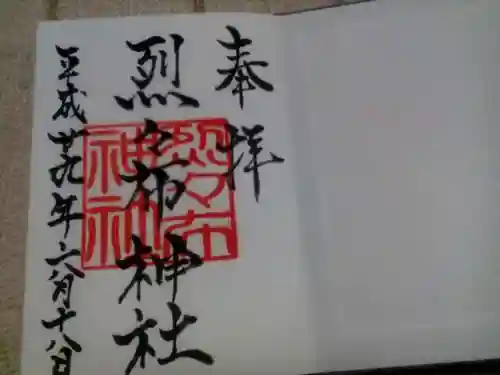 奉拝
烈々布神社
平成廿九年六月十八日
烈々布
神社